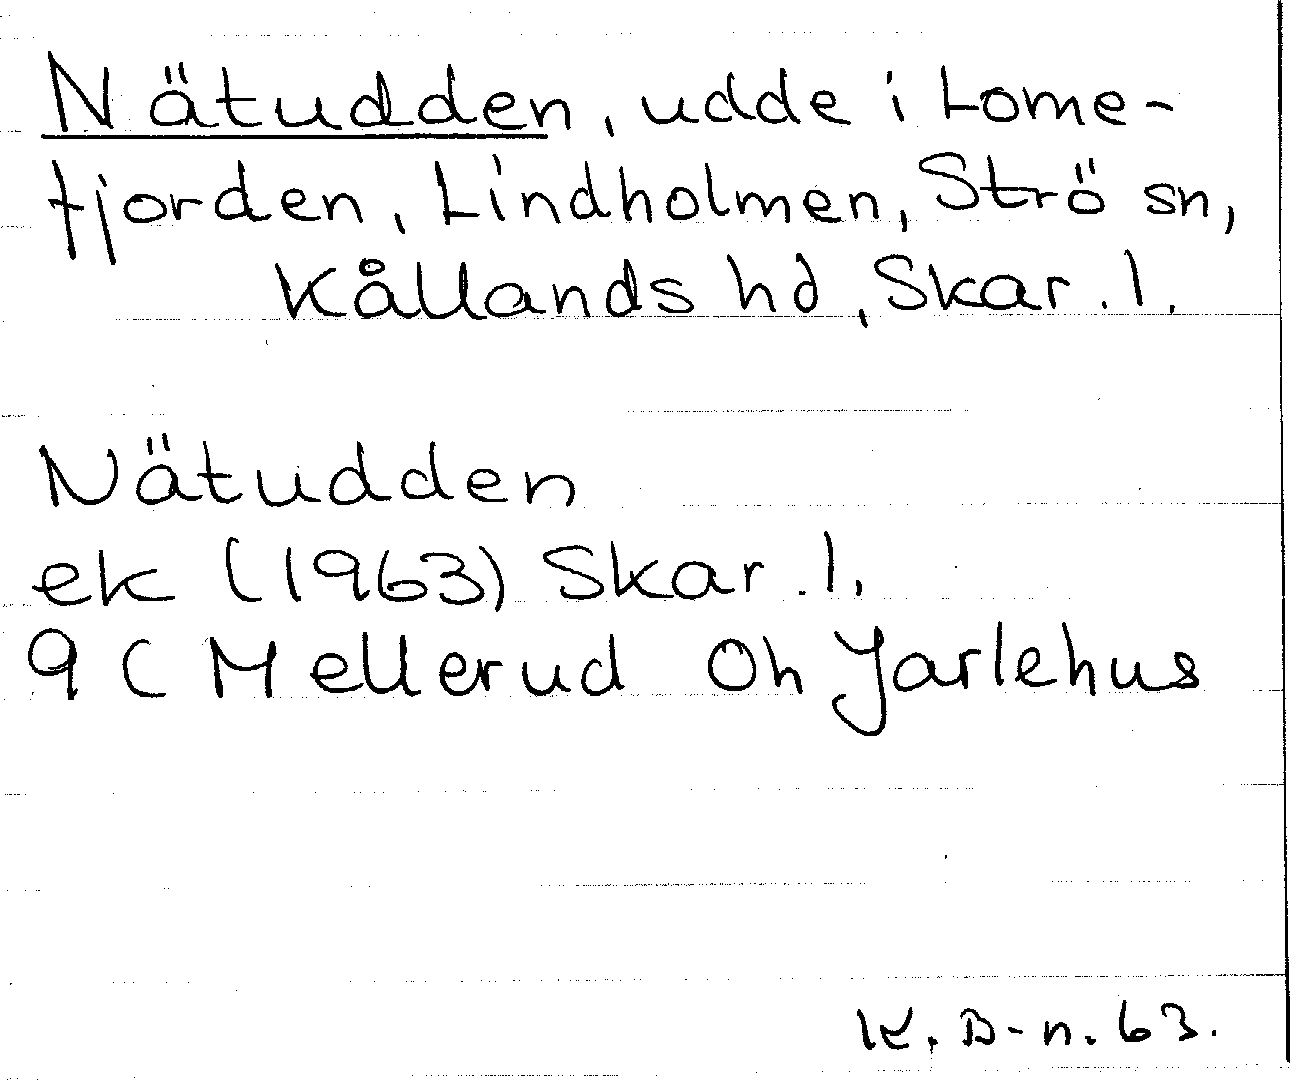 Nätudden, udde i Lome-
fjorden, Lindholmen, Strö sn,
Kållands hd, Skar. l.
Nätudden
ek (1963) Skar. l.
9 C Mellerud Oh Jarlehus
K. D-n. 63.